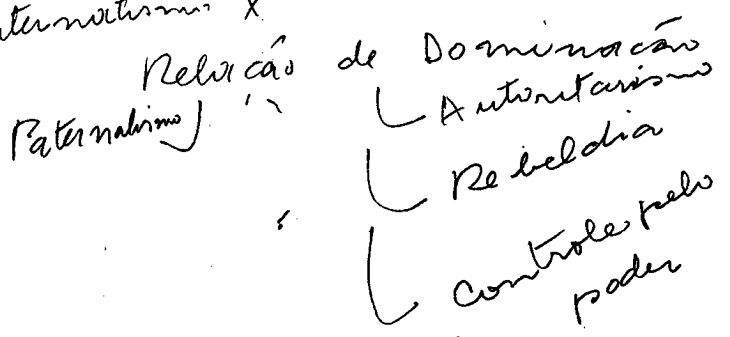 Paternalismo X
Relação de Dominação
Paternalismo
Autoritarismo
Rebeldia
Controle pelo
poder